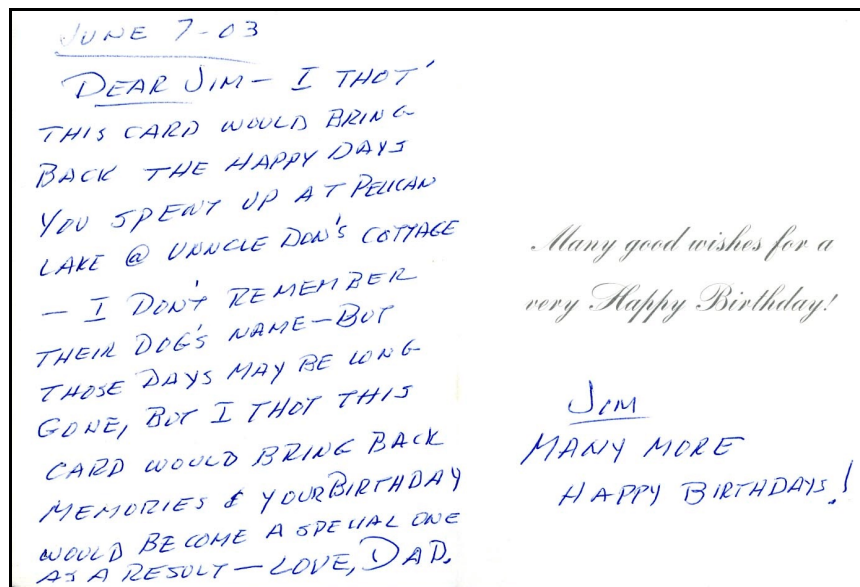 JUNE 7-03
DEAR JIM- I THOT'
THIS CARD WOULD BRING
BACK THE HAPPY DAYS
YOU SPENT UP AT PELICAN
LAKE @ UNNCLE DON'S COTTAGE
- I DON'T REMEMBER
THEIR DOG'S NAME-BUT
THOSE DAYS MAY BE LONG
GONE, BUT I THOT THIS
CARD WOULD BRING BACK
MEMORIES & YOUR BIRTHDAY
WOULD BECOME A SPECIAL ONE
AS A RESULT - LOVE, DAD.
Many good wishes for a
very Happy Birthday!
JIM
MANY MORE
HAPPY BIRTHDAYS!